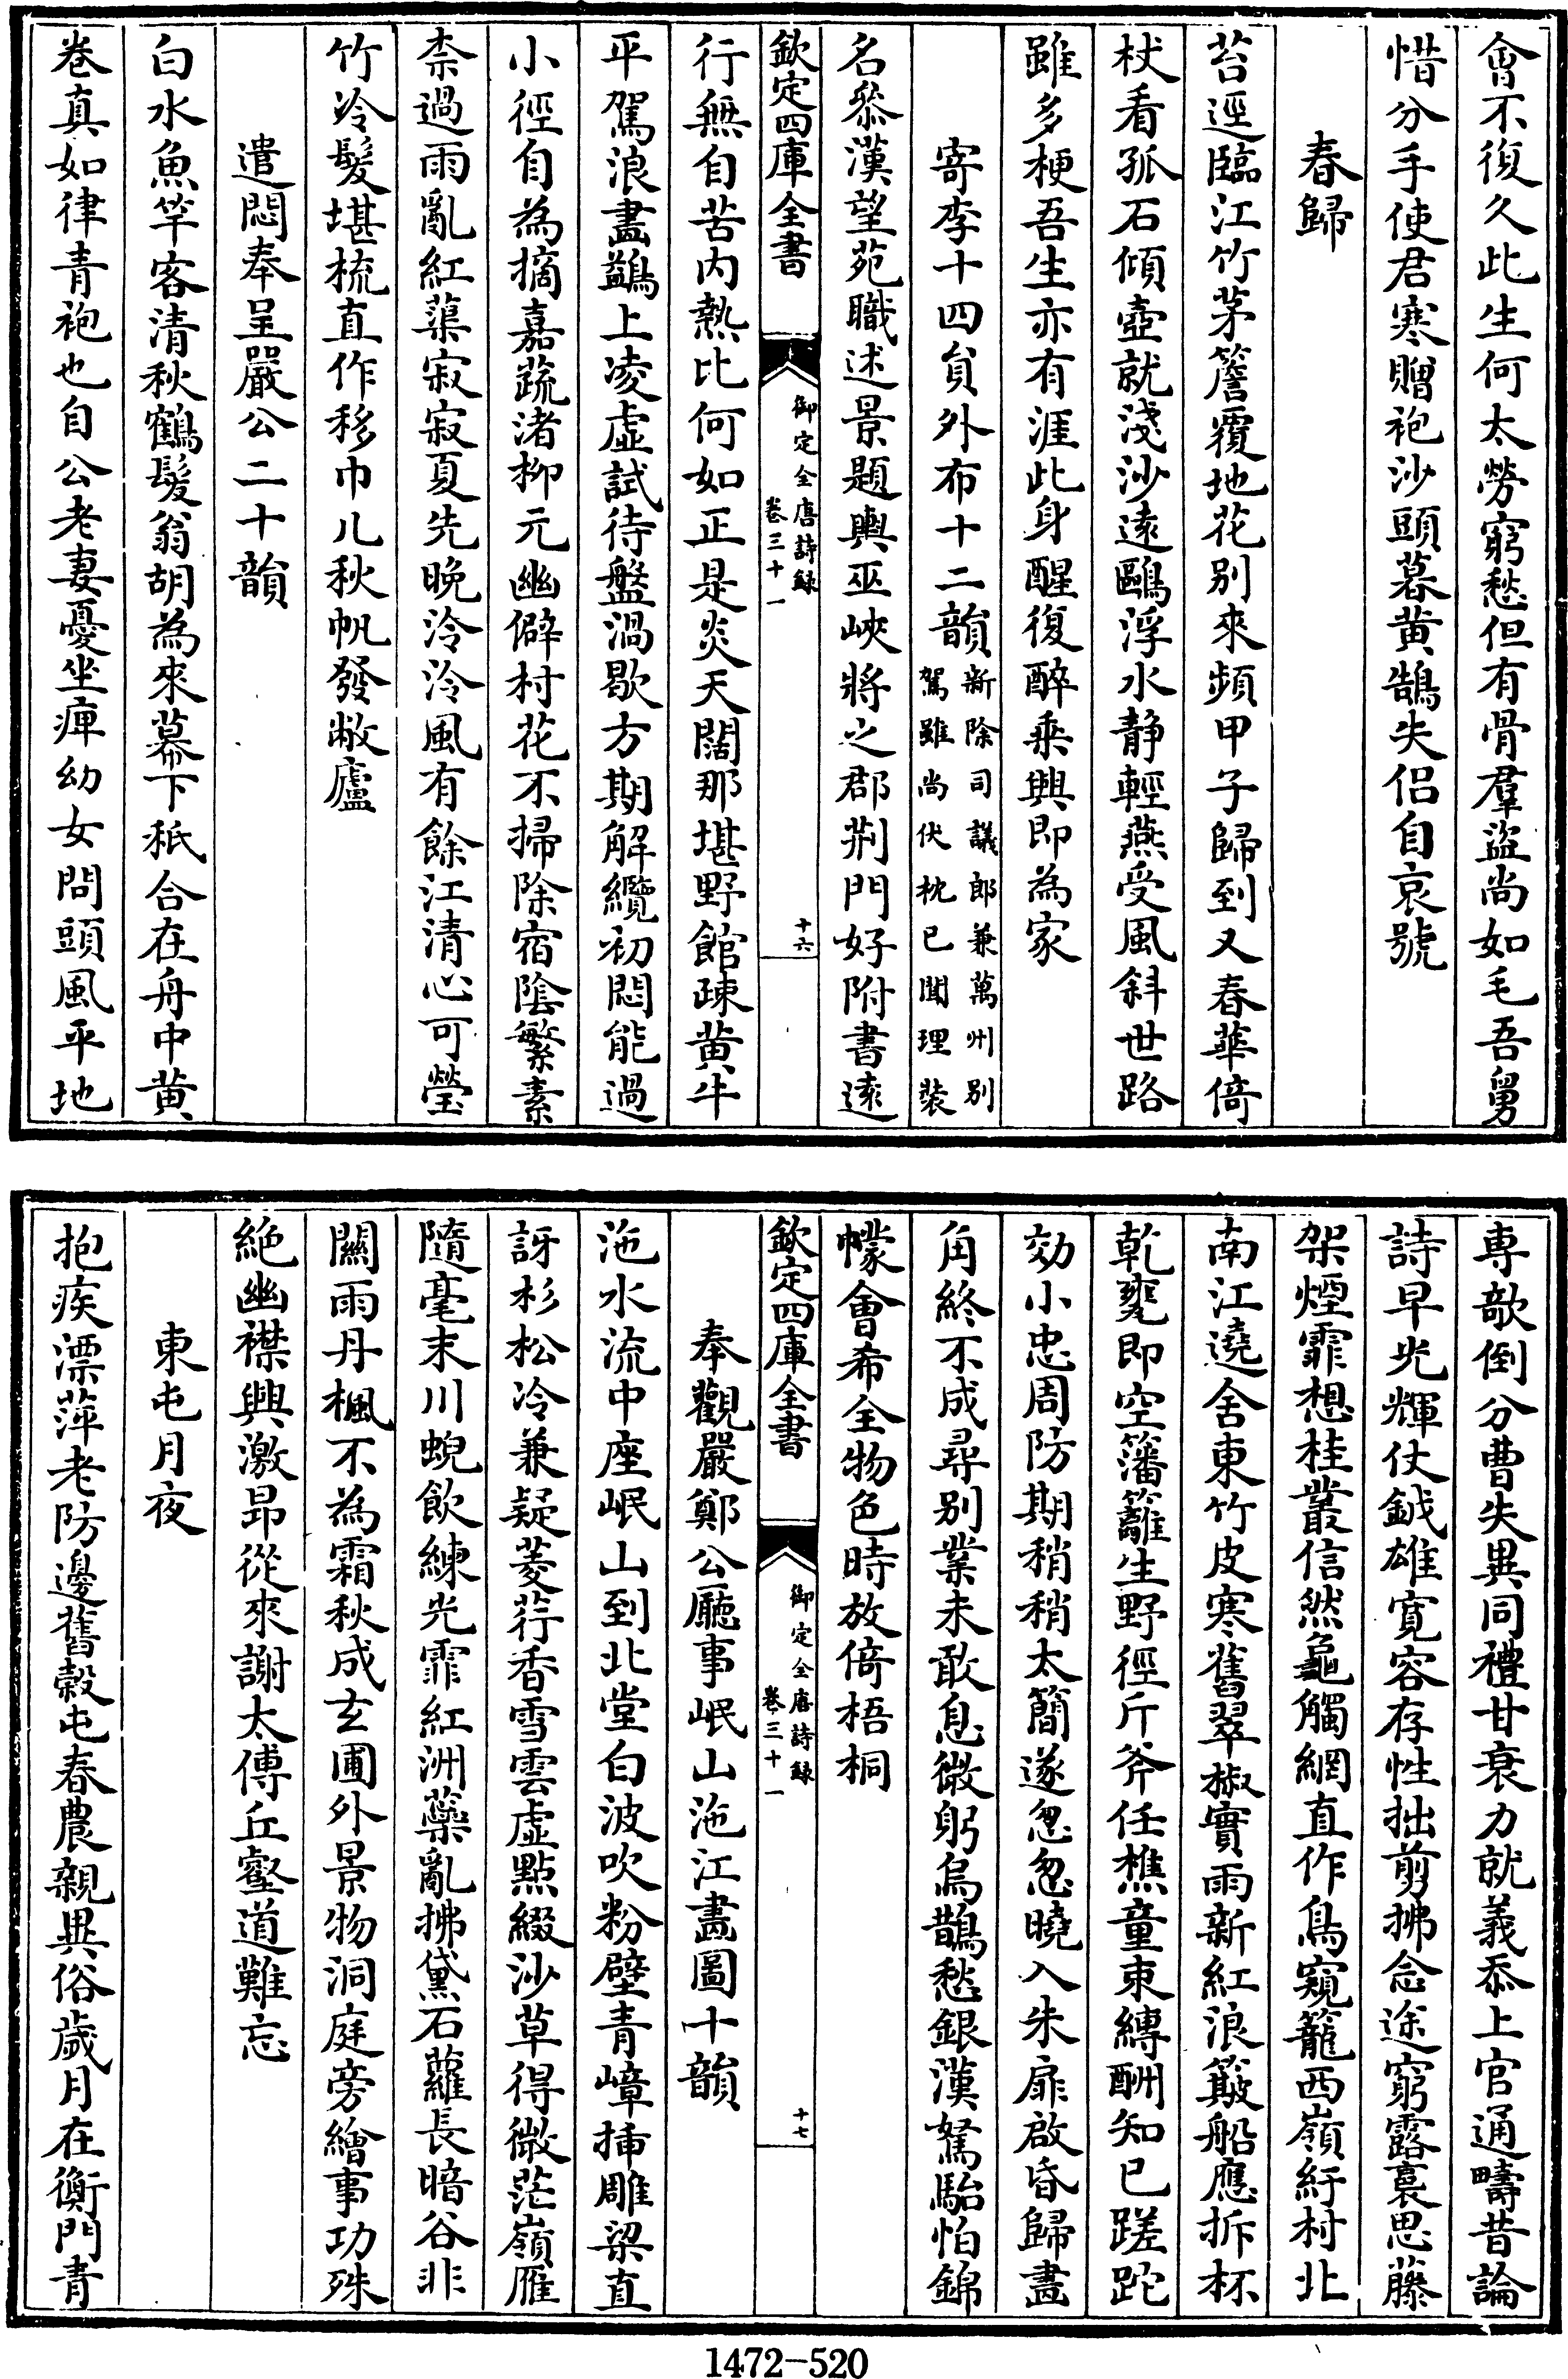 會不復久此生何太勞窮愁但有骨羣盜尚如毛吾舅
惜分手使君寒贈袍沙頭暮黃鵠失侣自哀號
春歸
苔逕臨江竹茅簷覆地花别來頻甲子歸到又春華倚
杖看孤石傾壺就淺沙逺鷗浮水靜輕燕受風斜世路
雖多梗吾生亦有涯此身醒復醉乘興即為家
寄李十四貟外布十二韻新除司議郎兼萬州别
駕雖尚伏枕已聞理裝
名叅漢望苑職述景題輿巫峽將之郡荆門好附書逺
欽定四庫全書
御定全唐詩録
卷三十一
十六
行無自苦内熱比何如正是炎天闊那堪野館疎黃牛
平駕浪畫鷁上凌虚試待盤渦歇方期解纜初悶能過
小徑自為摘嘉蔬渚柳元幽僻村花不掃除宿陰繁素
柰過雨亂紅蕖寂寂夏先晚泠泠風有餘江清心可瑩
竹冷髮堪梳直作移巾几秋帆發敝廬
遣悶奉呈嚴公二十韻
白水魚竿客清秋鶴髮翁胡為來幕下秖合在舟中黃
卷真如律青袍也自公老妻憂坐痺幼女問頭風平地
専欹倒分曹失異同禮甘衰力就義忝上官通疇昔論
詩早光輝仗鉞雄寛容存性拙剪拂念途窮露裛思藤
架煙霏想桂叢信然龜觸網直作鳥窺籠西嶺紆村北
南江遶舍東竹皮寒舊翠椒實雨新紅浪簸船應拆杯
乾甕即空籓籬生野徑斤斧任樵童束縛酬知已蹉跎
効小忠周防期稍稍太簡遂怱怱曉入朱扉啟昏歸畫
角終不成尋别業未敢息微躬烏鵲愁銀漢駑駘怕錦
幪會希全物色時放倚梧桐
欽定四庫全書
御定全唐詩録
卷三十一
十七
奉觀嚴鄭公㕔事岷山沲江畫圖十韻
沲水流中座岷山到北堂白波吹粉壁青嶂揷雕梁直
訝杉松冷兼疑菱荇香雪雲虚㸃綴沙草得微茫嶺雁
隨毫末川蜺飲練光霏紅洲蘂亂拂黛石蘿長暗谷非
關雨丹楓不為霜秋成玄圃外景物洞庭旁繪事功殊
絶幽襟興激昻從來謝太傅丘壑道難忘
東屯月夜
抱疾漂萍老防邊舊榖屯春農親異俗歲月在衡門青
1472-520